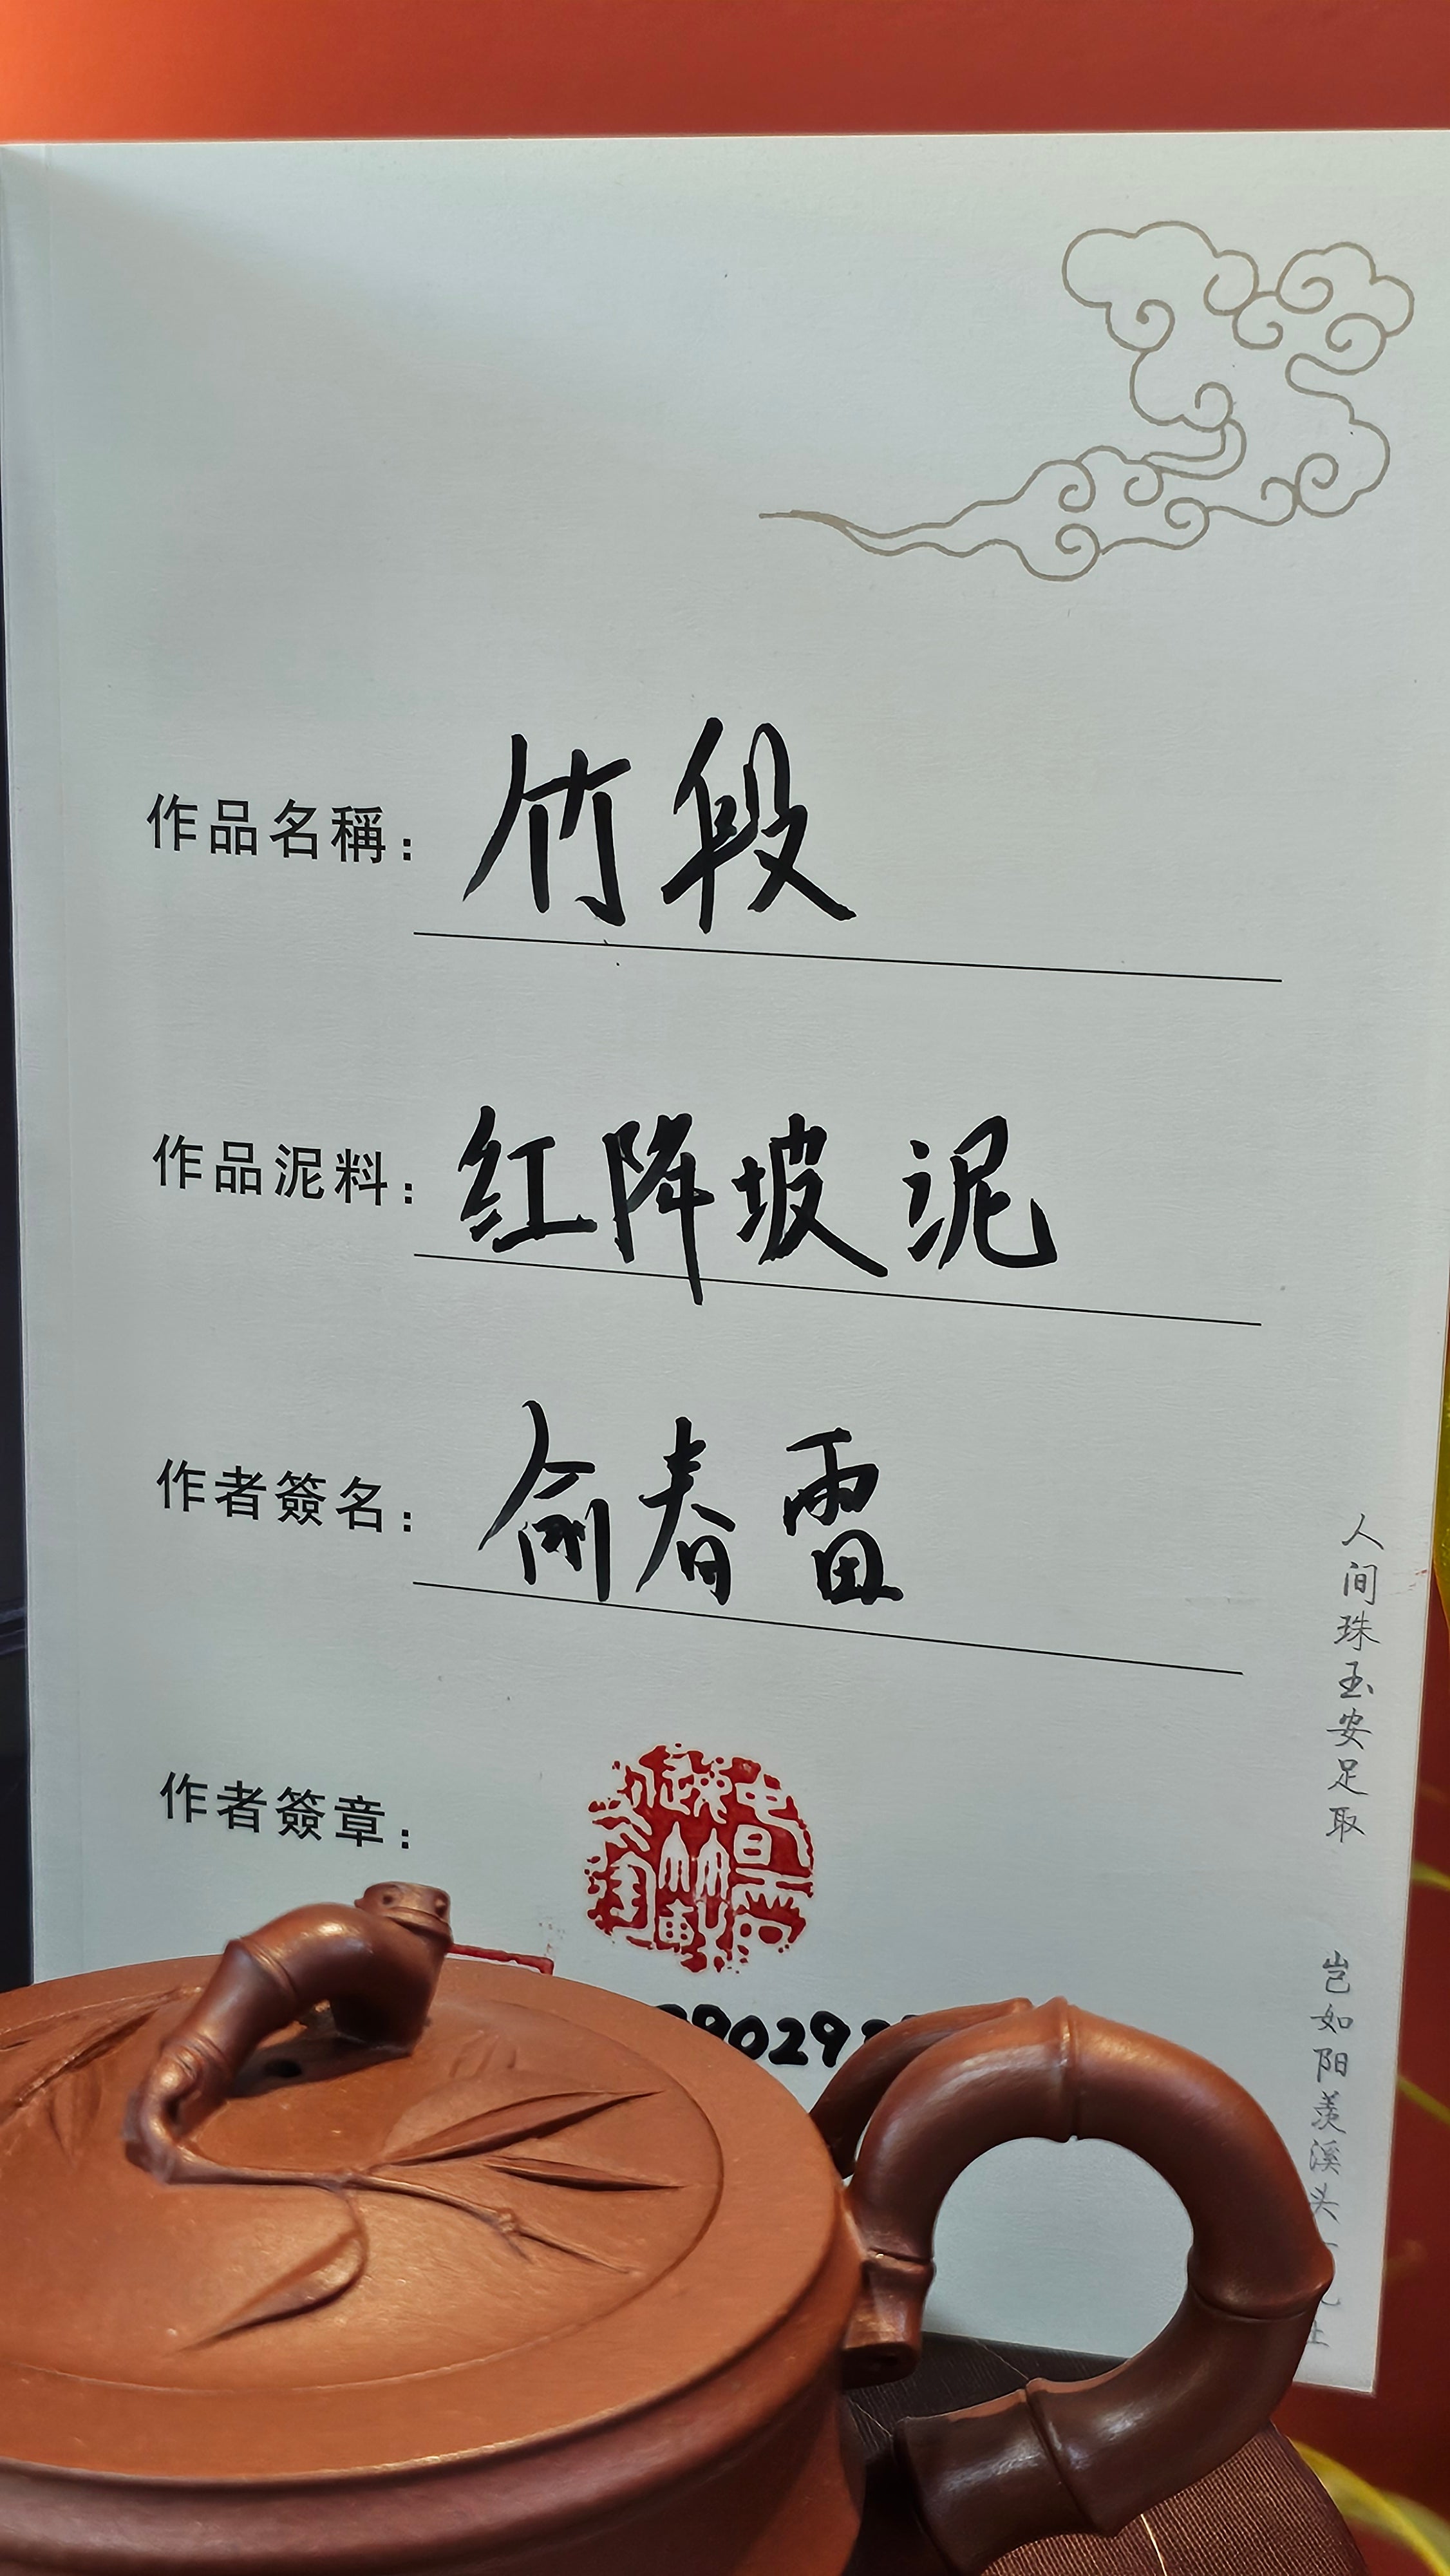 作品名稱：竹段
作品泥料：红降坡泥
作者簽名：俞春雷
作者簽章：
9029
人间珠玉安足取
岂如阳羡溪头一